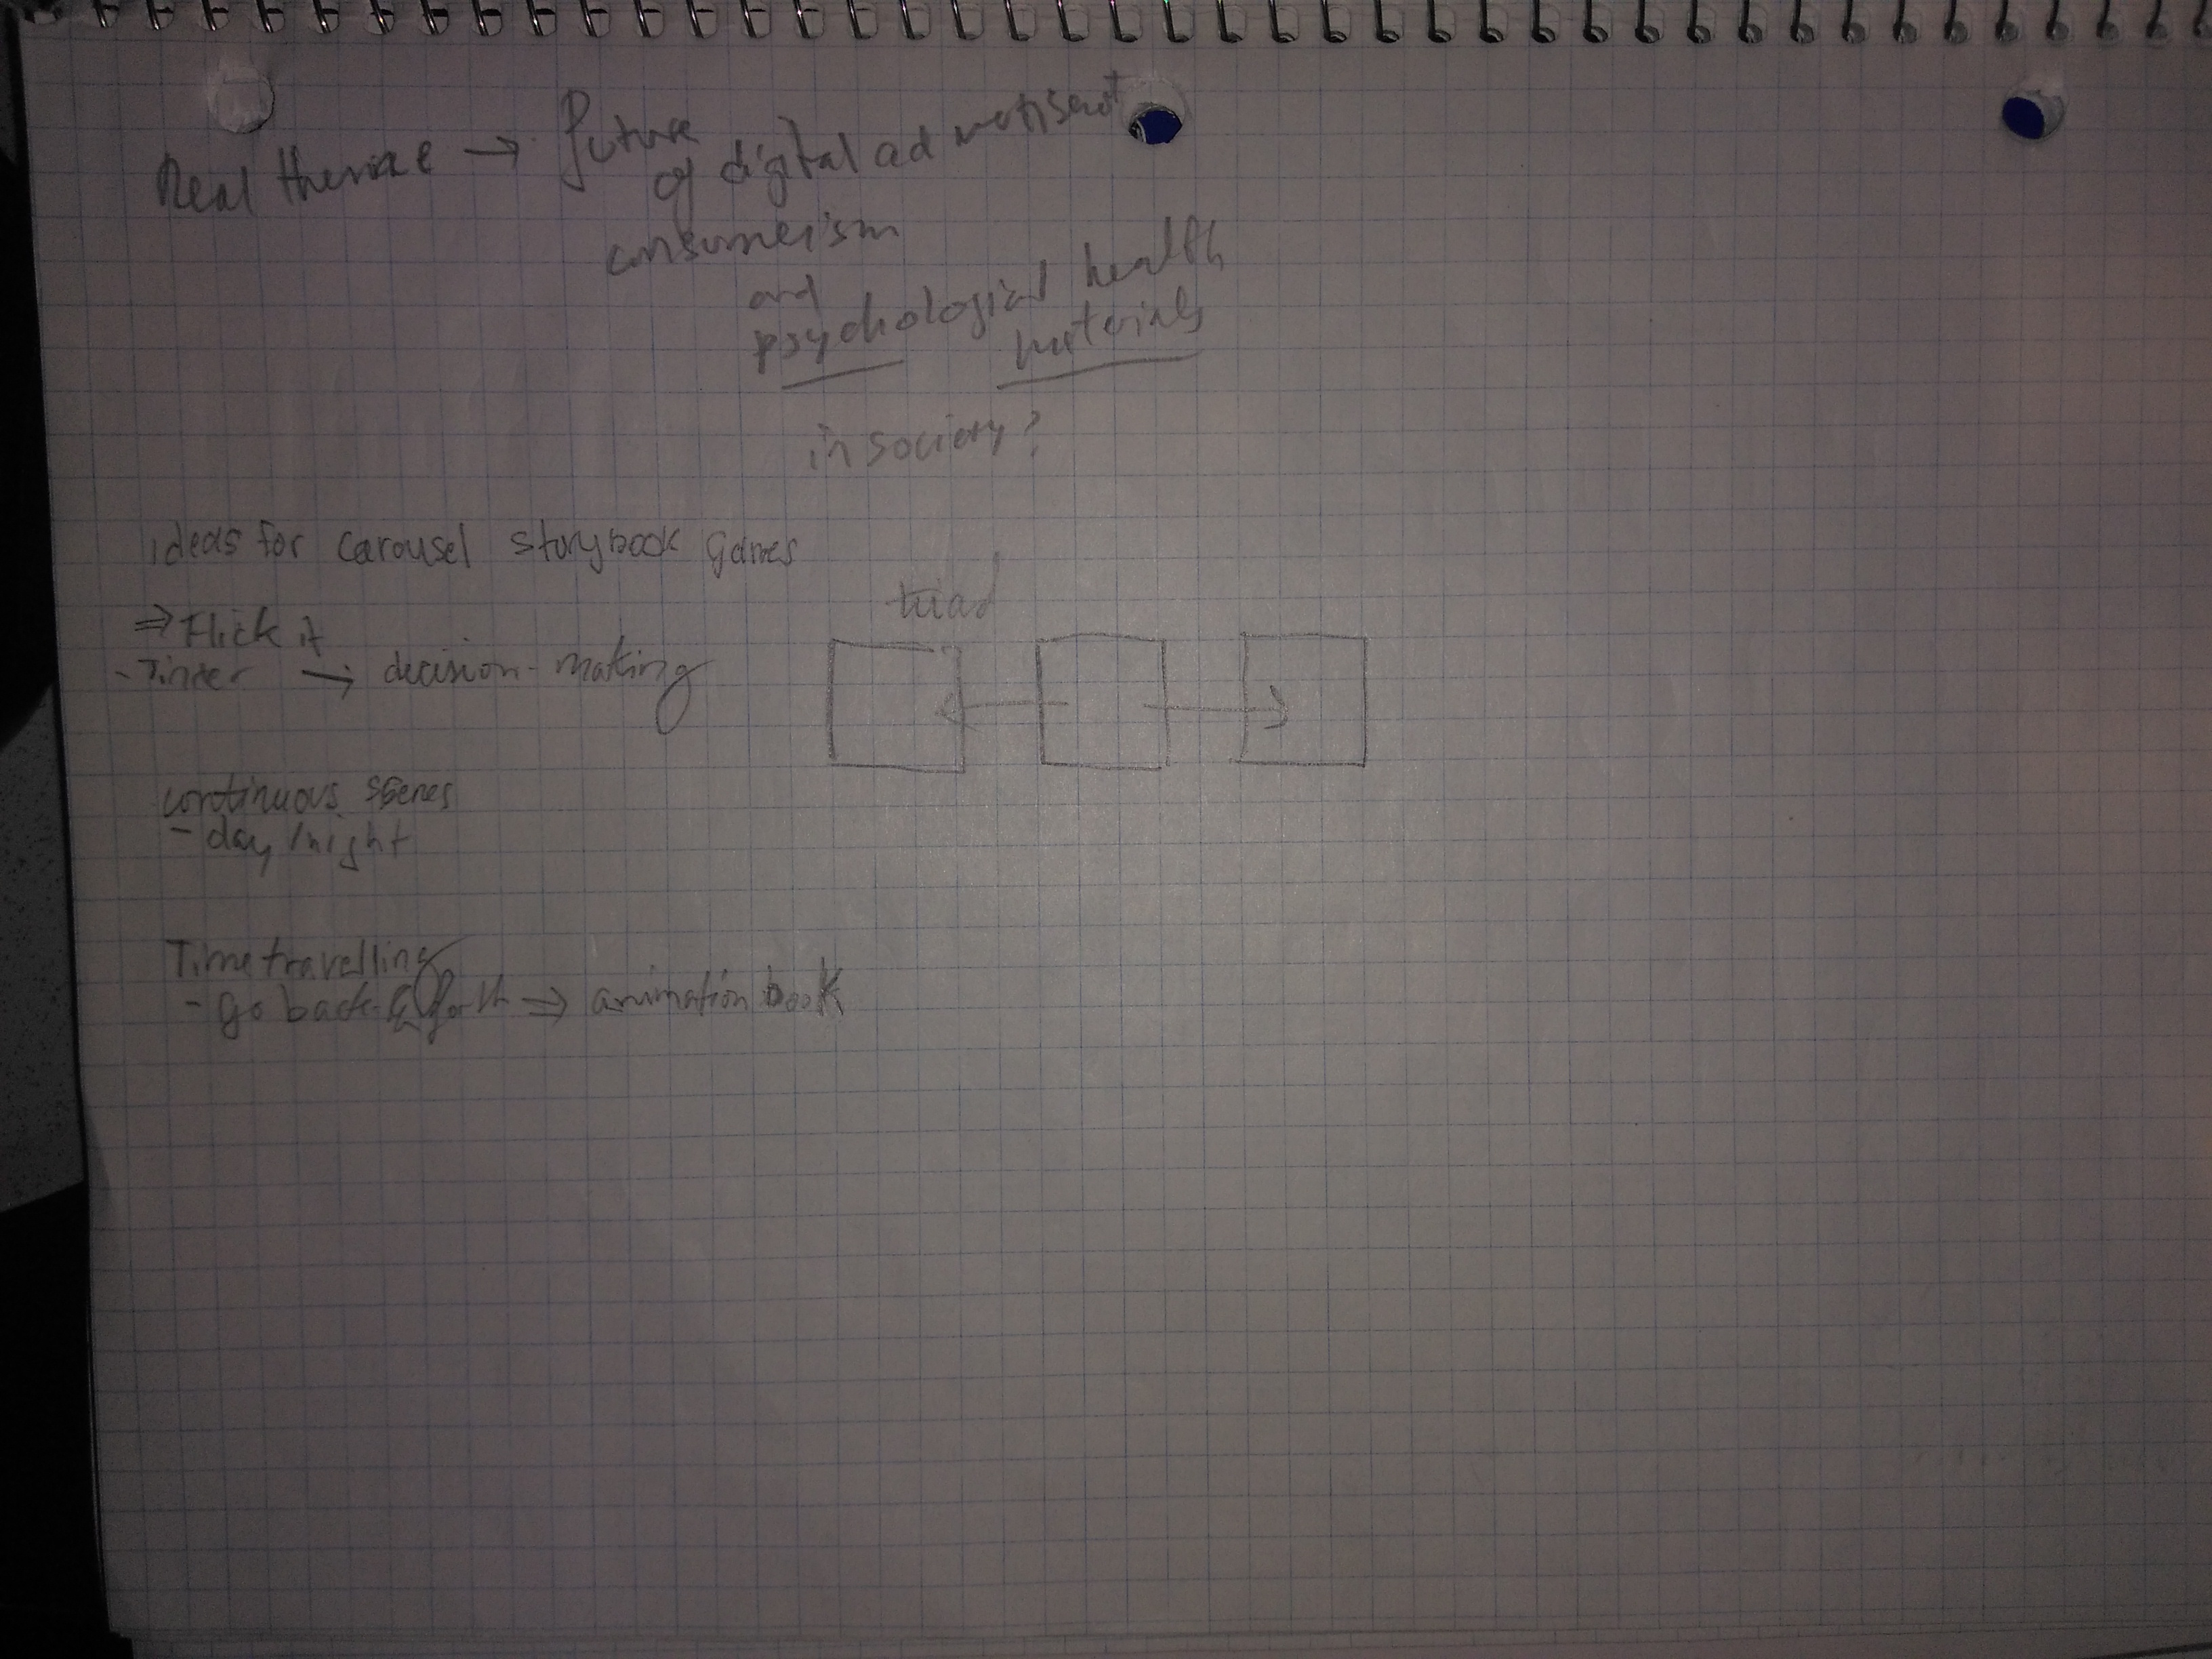 Real theme → future
of digital advertisement
consumerism
and
psychological health
materials
in society?
ideas for carousel storybook games
⇒ Flick it
- Tinder → decision-making
triad
continuous scenes
- day/night
Time travelling
- go back & forth ⇒ animation book